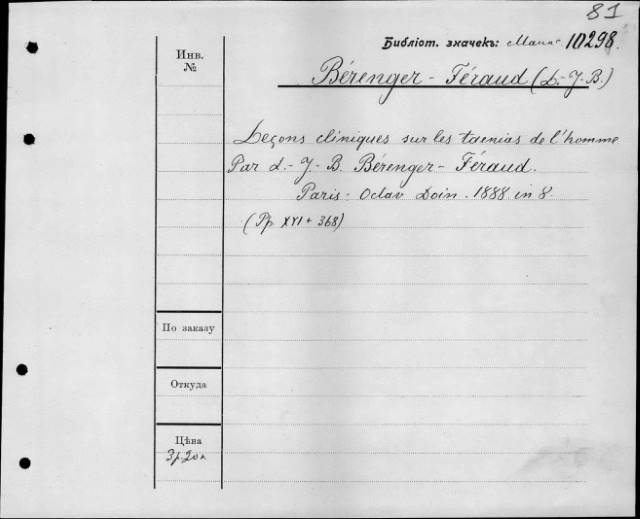 81
Библіот. значекъ: 10298.
Инв.
№
Bérenger-Féraud (L.-J.-B.)
Leçons cliniques sur les taenias de l'homme
Par L.-J.-B. Bérenger-Féraud.
Paris. Octav Doin. 1888 in 8.
(Pp. XVI + 368)
По заказу
Откуда
Цѣна
3р. 20к